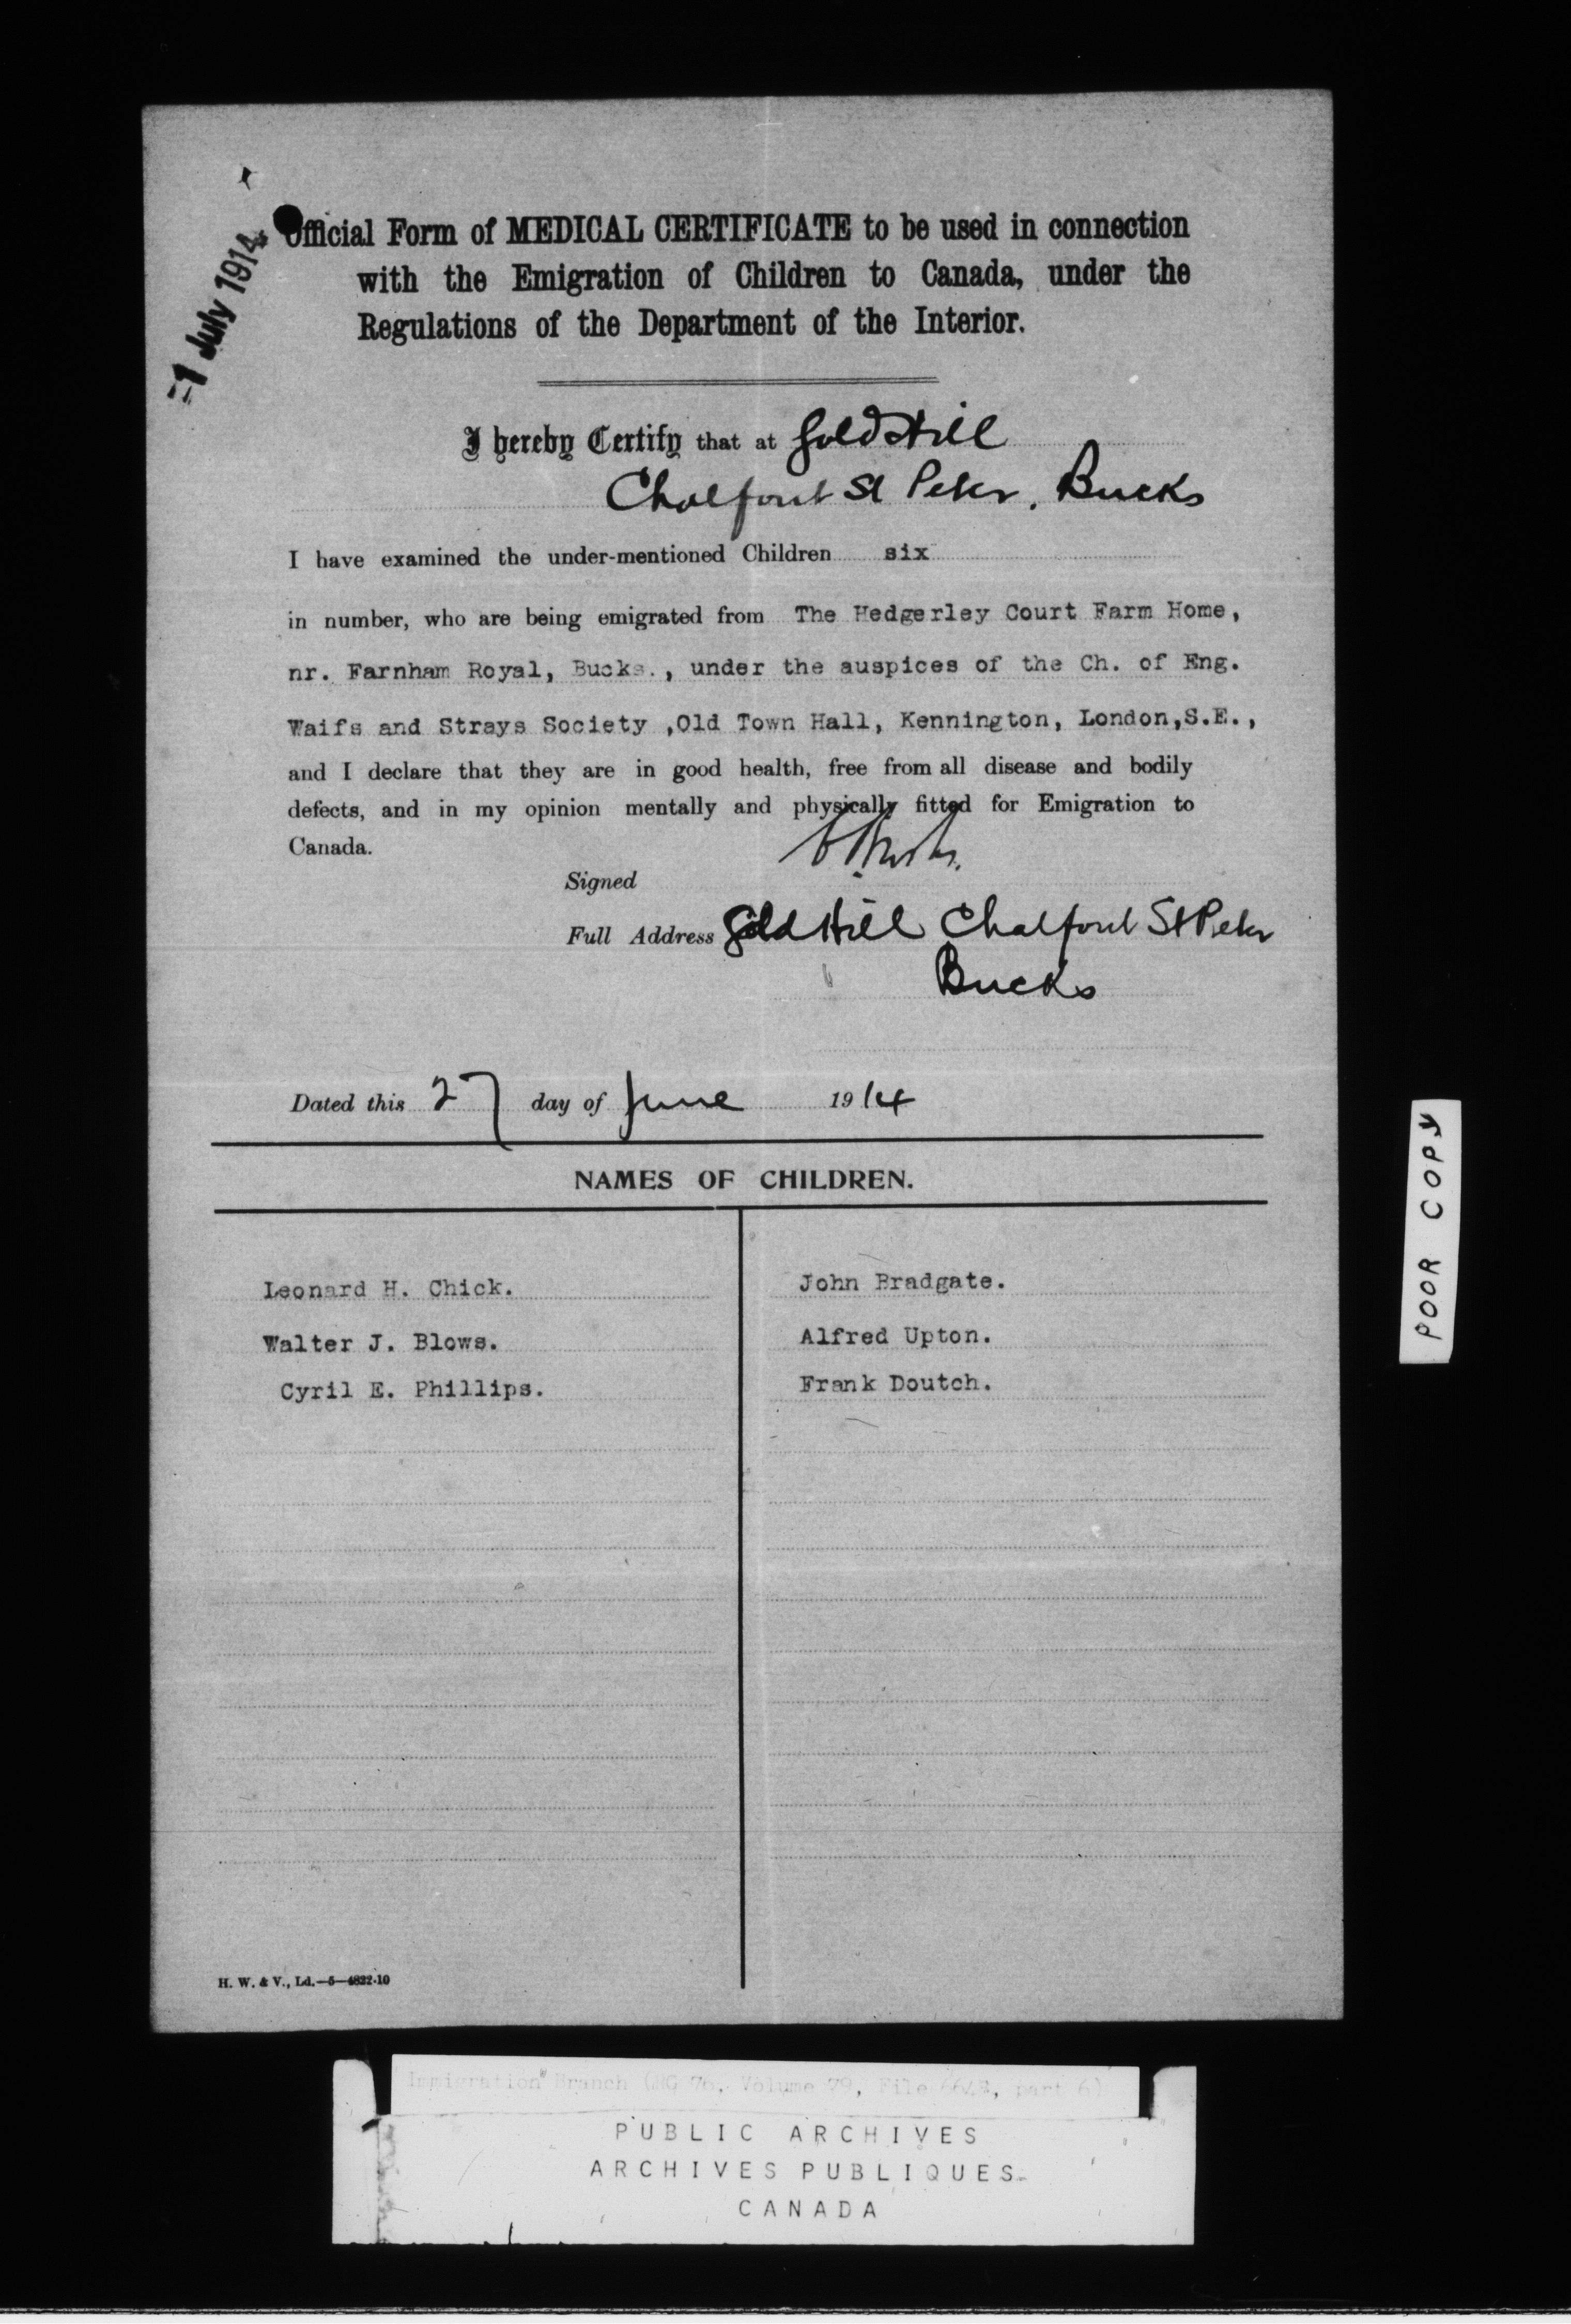 -1 July 1914
Official Form of MEDICAL CERTIFICATE to be used in connection
with the Emigration of Children to Canada, under the
Regulations of the Department of the Interior.
I hereby Certify that at Gold Hill
Chalfont St Peter, Bucks
I have examined the under-mentioned Children six
in number, who are being emigrated from The Hedgerley Court Farm Home,
nr. Farnham Royal, Bucks., under the auspices of the Ch. of Eng.
Waifs and Strays Society ,Old Town Hall, Kennington, London,S.E.,
and I declare that they are in good health, free from all disease and bodily
defects, and in my opinion mentally and physically fitted for Emigration to
Canada.
Signed
Full Address Gold Hill Chalfont St Peter
Bucks
Dated this 27 day of June 1914
NAMES OF CHILDREN.
Leonard H. Chick.
Walter J. Blows.
Cyril E. Phillips.
John Bradgate.
Alfred Upton.
Frank Doutch.
H. W. & V., Ld.—5—4832-10
POOR COPY
Immigration Branch (RG 76, Volume 79, File part 6)
PUBLIC ARCHIVES
ARCHIVES PUBLIQUES
CANADA